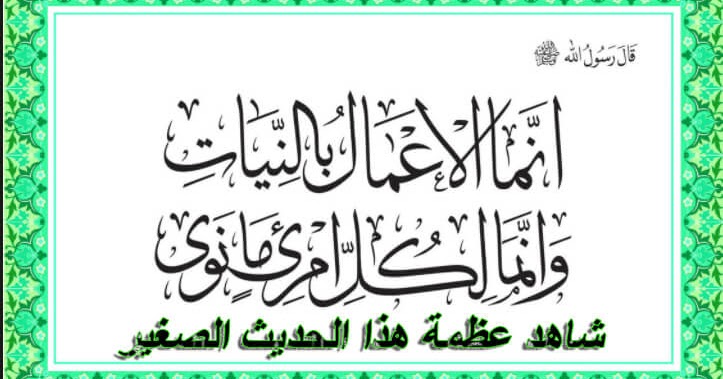 قَالَ رَسُولُ الله ﷺ
انَّمَا الأعْمَالُ بِالنِّيَّاتِ
وَانَّمَا لِكُلِّ امْرِئٍ مَا نَوَى
شاهد عظمة هذا الحديث الصغير